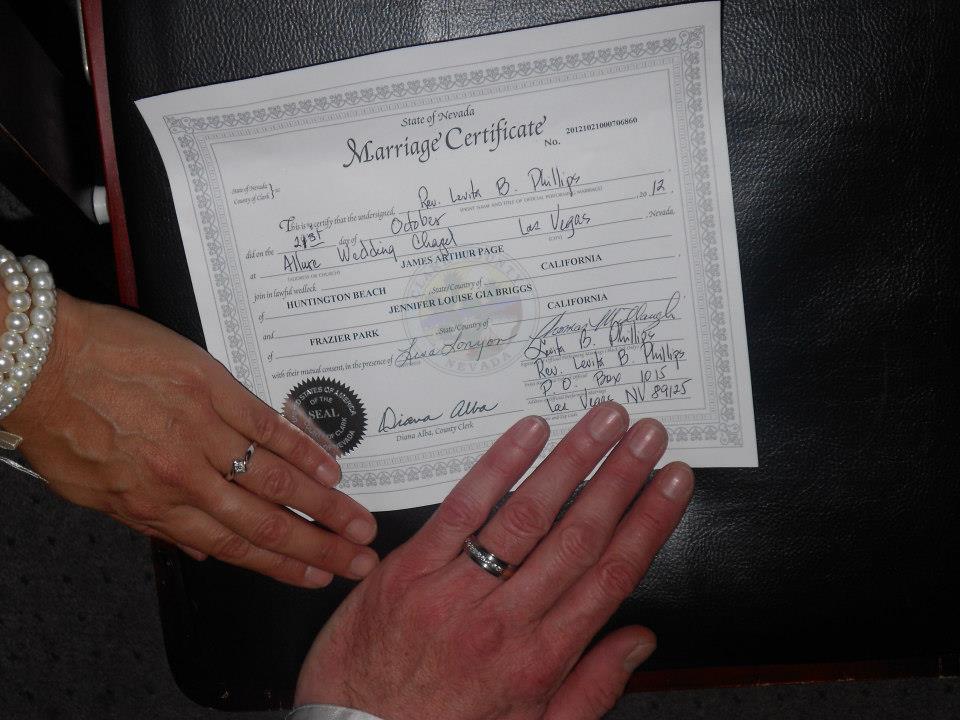 State of Nevada
Marriage Certificate
No. 20121021000706860
State of Nevada
County of Clark } ss:
This is to certify that the undersigned, Rev. Levita B. Phillips
(PRINT NAME AND TITLE OF OFFICIAL PERFORMING MARRIAGE)
did on the 21st day of October , 20 12 ,
at Allure Wedding Chapel Las Vegas , Nevada,
(ADDRESS OR CHURCH) (CITY)
join in lawful wedlock JAMES ARTHUR PAGE
of HUNTINGTON BEACH , State/Country of CALIFORNIA
and JENNIFER LOUISE GIA BRIGGS
of FRAZIER PARK , State/Country of CALIFORNIA
with their mutual consent, in the presence of Lisa Lonyon
Levita B. Phillips
Rev. Levita B. Phillips
P.O. Box 1015
Las Vegas NV 89125
STATES OF AMERICA
OF THE
SEAL
NEVADA
Diana Alba
Diana Alba, County Clerk